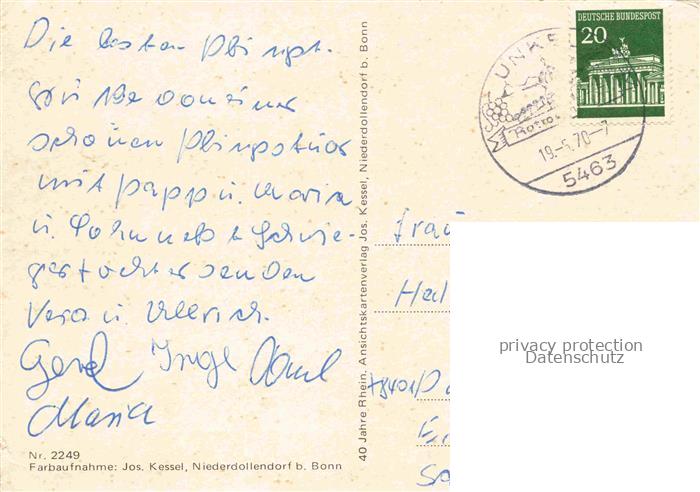 Die besten Pfingst-
grüße von einer
schönen Pfingsttour
mit Papp u. Maria
u. Sohn nebst Schwie-
gertochter senden
Vera u. Ullrich.
Gerd Inge
Maria
Nr. 2249
Farbaufnahme: Jos. Kessel, Niederdollendorf b. Bonn
40 Jahre Rhein. Ansichtskartenverlag Jos. Kessel, Niederdollendorf b. Bonn
DEUTSCHE BUNDESPOST
20
UNKEL
19.-5.70-7
5463
Frau
Hel
privacy protection
Datenschutz